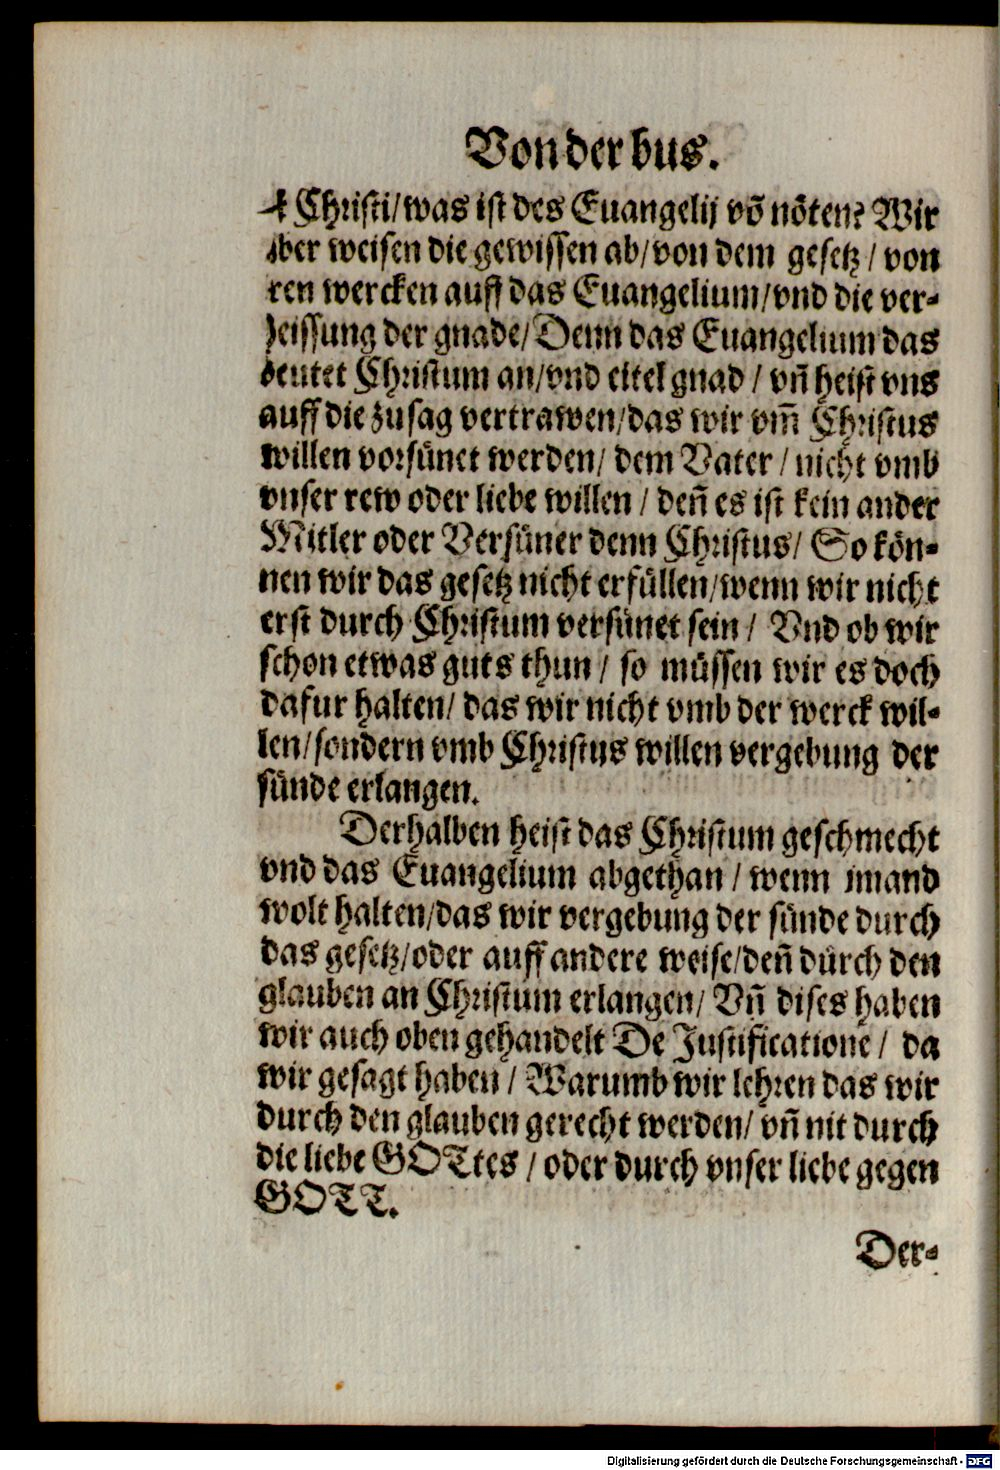 Von der bus.
Christi/was ist des Euangelij võ nöten? Wir
aber weisen die gewissen ab/von dem gesetz/von
ren wercken auff das Euangelium/vnd die ver-
heissung der gnade/Denn das Euangelium das
beutet Christum an/vnd eitel gnad/vñ heist vns
auff die zusag vertrawen/das wir vm̃ Christus
willen vorsünet werden/dem Vater/nicht vmb
vnser rew oder liebe willen/deñ es ist kein ander
Mitler oder Versüner denn Christus/So kön-
nen wir das gesetz nicht erfüllen/wenn wir nicht
erst durch Christum versünet sein/Vnd ob wir
schon etwas guts thun/so müssen wir es doch
dafur halten/das wir nicht vmb der werck wil-
len/sondern vmb Christus willen vergebung der
sünde erlangen.
Derhalben heist das Christum geschmecht
vnd das Euangelium abgethan/wenn imand
wolt halten/das wir vergebung der sünde durch
das gesetz/oder auff andere weise/deñ durch den
glauben an Christum erlangen/Vñ dises haben
wir auch oben gehandelt De Justificatione/da
wir gesagt haben/Warumb wir lehren das wir
durch den glauben gerecht werden/vñ nit durch
die liebe GOTtes/oder durch vnser liebe gegen
GOTT.
Der-
Digitalisierung gefördert durch die Deutsche Forschungsgemeinschaft - DFG